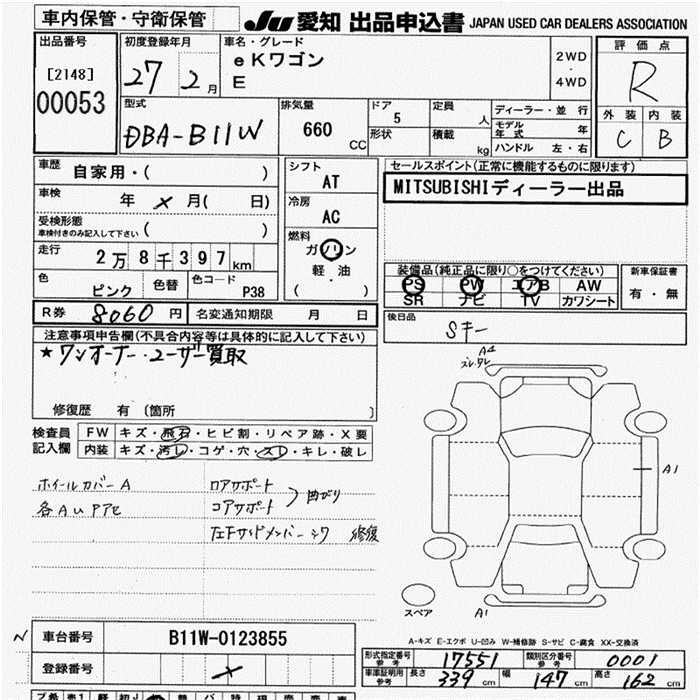 車内保管・守衛保管
JU 愛知 出品申込書 JAPAN USED CAR DEALERS ASSOCIATION
出品番号
[2148]
00053
初度登録年月
27年 2月
車名・グレード
eKワゴン
E
2WD
・
4WD
評価点
R
外装 内装
C B
型式
DBA-B11W
排気量
660 CC
ドア
5
形状
定員 人
積載 kg
ディーラー・並行
モデル年式 年
ハンドル 左・右
車歴 自家用・( )
車検 年 メ 月( 日)
受検形態
車検付きのみ記入して下さい ( )
走行 2万8千397km
色 ピンク 色替 色コード P38
シフト
AT
冷房
AC
燃料
ガソリン
軽・油
( )
セールスポイント(正常に機能するものに限ります)
MITSUBISHIディーラー出品
装備品(純正品に限り○をつけてください)
PS PW エアB AW
SR ナビ TV カワシート
新車保証書
有・無
R券 8060円 名変通知期限 月 日
後日品
Sキー
注意事項申告欄(不具合内容等は具体的に記入して下さい)
★ワンオーナー・ユーザー買取
修復歴 有 〔箇所 〕
検査員記入欄
FW キズ・飛石・ヒビ割・リペア跡・X要
内装 キズ・汚レ・コゲ・穴・スレ・キレ・破レ
ホイールカバーA
各AU
ロアサポート
コアサポート
曲がり
左Fサイドメンバー 修復
A4
ズレ
A1
スペア
A1
A-キズ E-エクボ U-凹み W-補修跡 S-サビ C-腐食 XX-交換済
N
車台番号 B11W-0123855
登録番号
型式指定番号 参考 17551
類別区分番号 参考 0001
車庫証明用 参考 長さ 339cm 幅 147cm 高さ 162cm